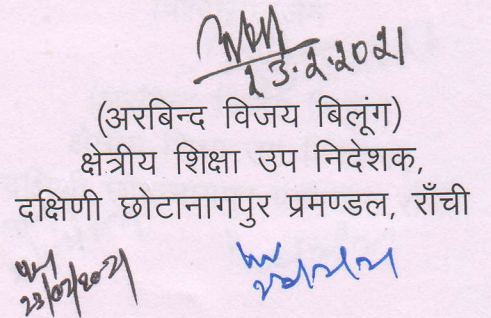 23.2.2021
(अरबिन्द विजय बिलूंग)
क्षेत्रीय शिक्षा उप निदेशक,
दक्षिणी छोटानागपुर प्रमण्डल, राँची
23/02/2021